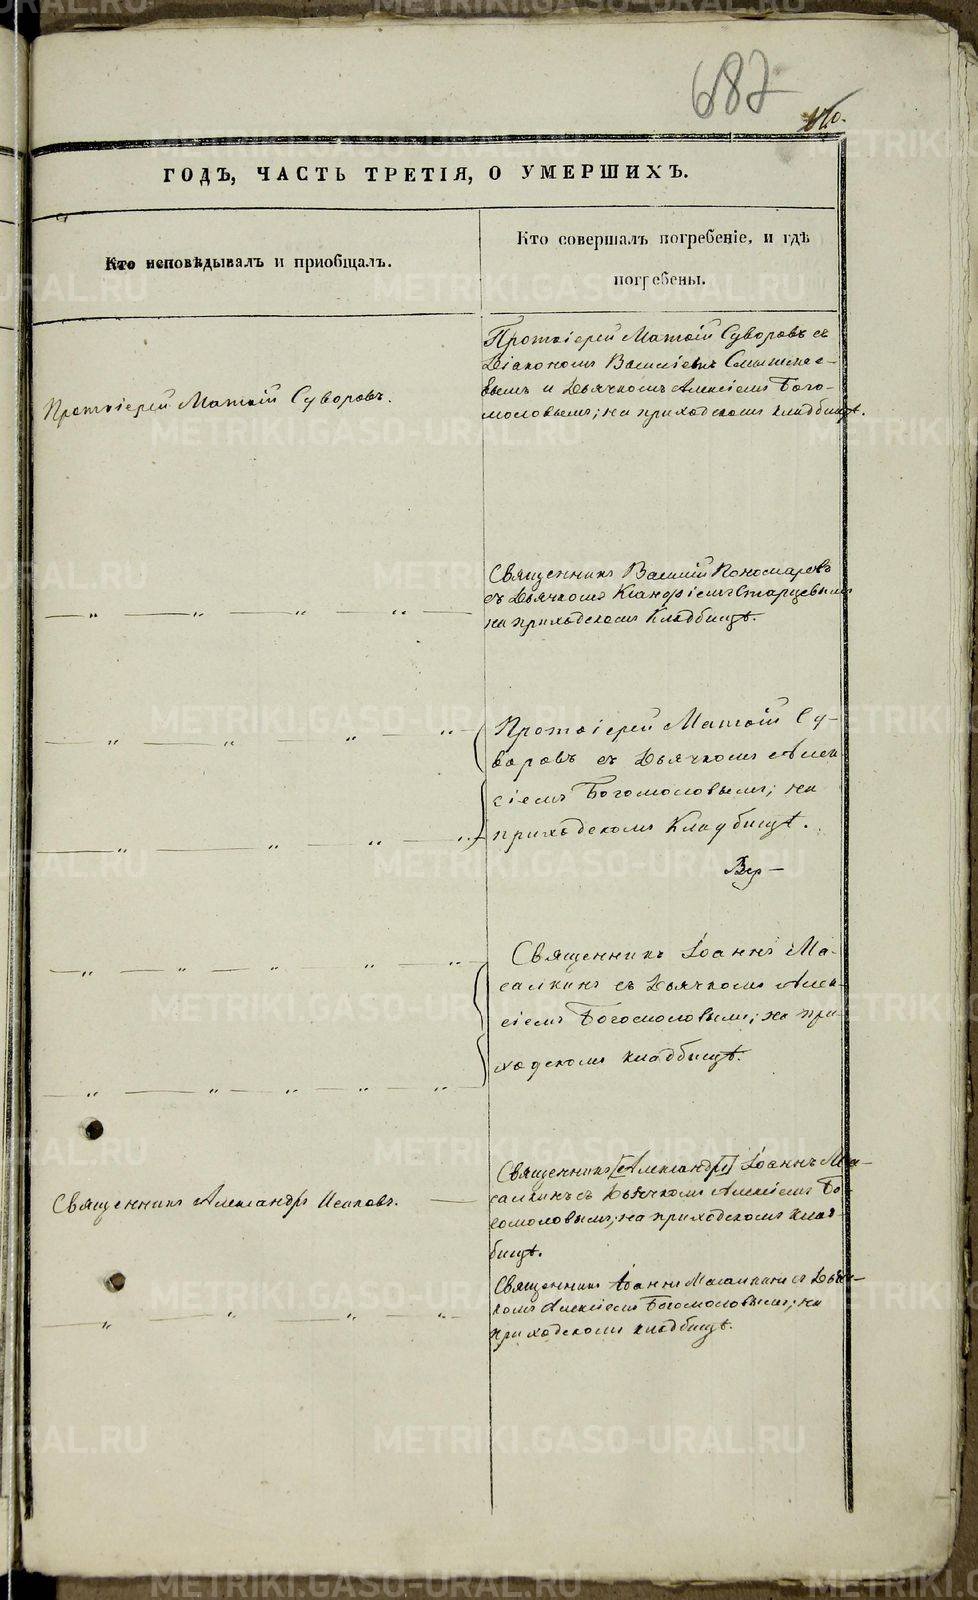 687
ГОДЪ, ЧАСТЬ ТРЕТІЯ, О УМЕРШИХЪ.
Кто исповѣдывалъ и приобщалъ.
Кто совершалъ погребеніе, и гдѣ
погребены.
Протоіерей Матѳій Суворовъ.
Протоіерей Матѳій Суворовъ съ
Діакономъ Василіемъ
вымъ и Дьячкомъ Алексіемъ Бого-
моловымъ; на приходскомъ кладбищѣ.
Священникъ Василій Пономаревъ
съ Дьячкомъ Старцевымъ
на приходскомъ Кладбищѣ.
Протоіерей Матѳій Су-
воровъ съ Дьячкомъ Алек-
сіемъ Богомоловымъ; на
приходскомъ Кладбищѣ.
Священникъ Іоаннъ Ма-
салкинъ съ Дьячкомъ Алек-
сіемъ Богомоловымъ; на при-
ходскомъ кладбищѣ.
Священникъ Александръ Исаковъ.
Священникъ [Александръ] Іоаннъ Ма-
салкинъ съ Дьячкомъ Алексіемъ Бо-
гомоловымъ; на приходскомъ клад-
бищѣ.
Священникъ Іоаннъ Масалкинъ съ Дьяч-
комъ Алексіемъ Богомоловымъ; на
приходскомъ кладбищѣ.
METRIKI.GASO-URAL.RU